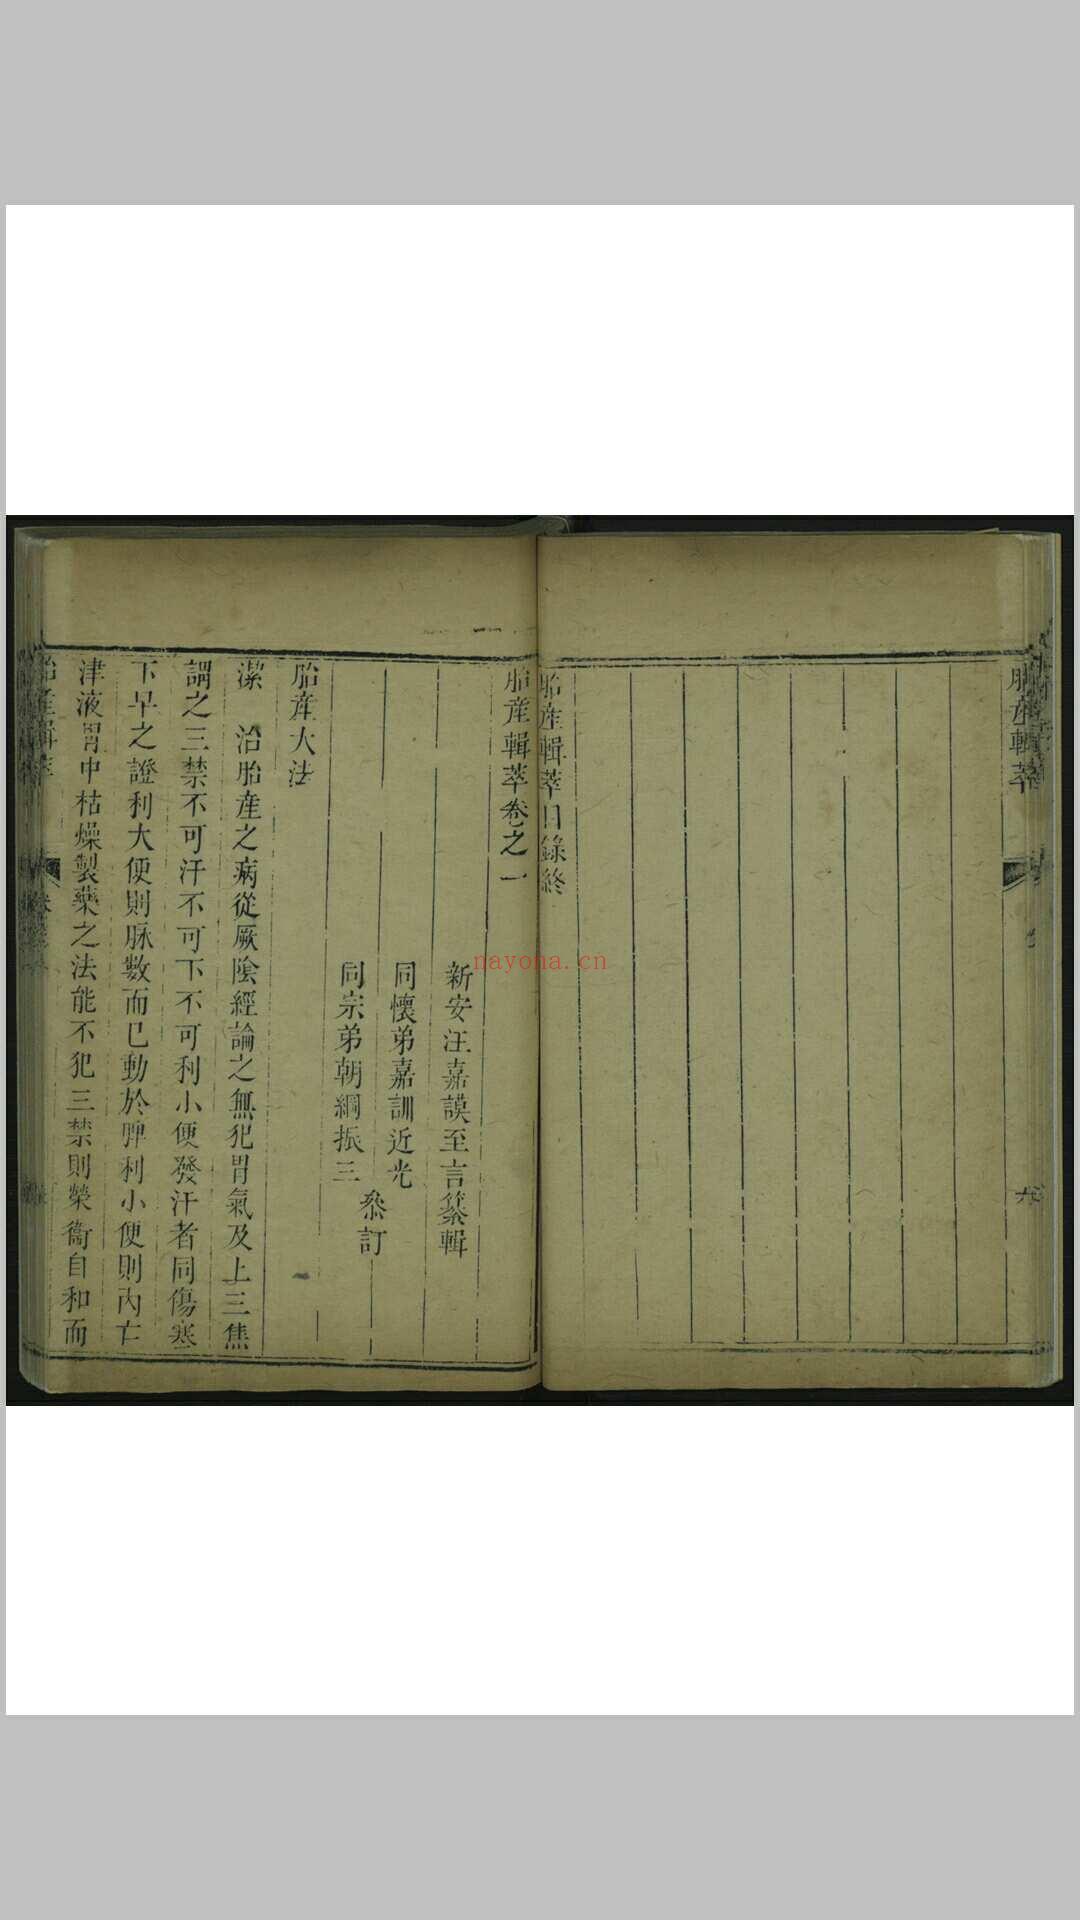 胎產輯萃
六
胎產輯萃目錄終
胎產輯萃卷之一
新安汪嘉謨至言纂輯
同懷弟嘉訓近光
同宗弟朝綱振三
叅訂
胎產大法
潔　治胎產之病從厥陰經論之無犯胃氣及上三焦
謂之三禁不可汗不可下不可利小便發汗者同傷寒
下早之證利大便則脉數而已動於脾利小便則內亡
津液胃中枯燥製藥之法能不犯三禁則榮衞自和而
胎產輯萃
nayona.cn